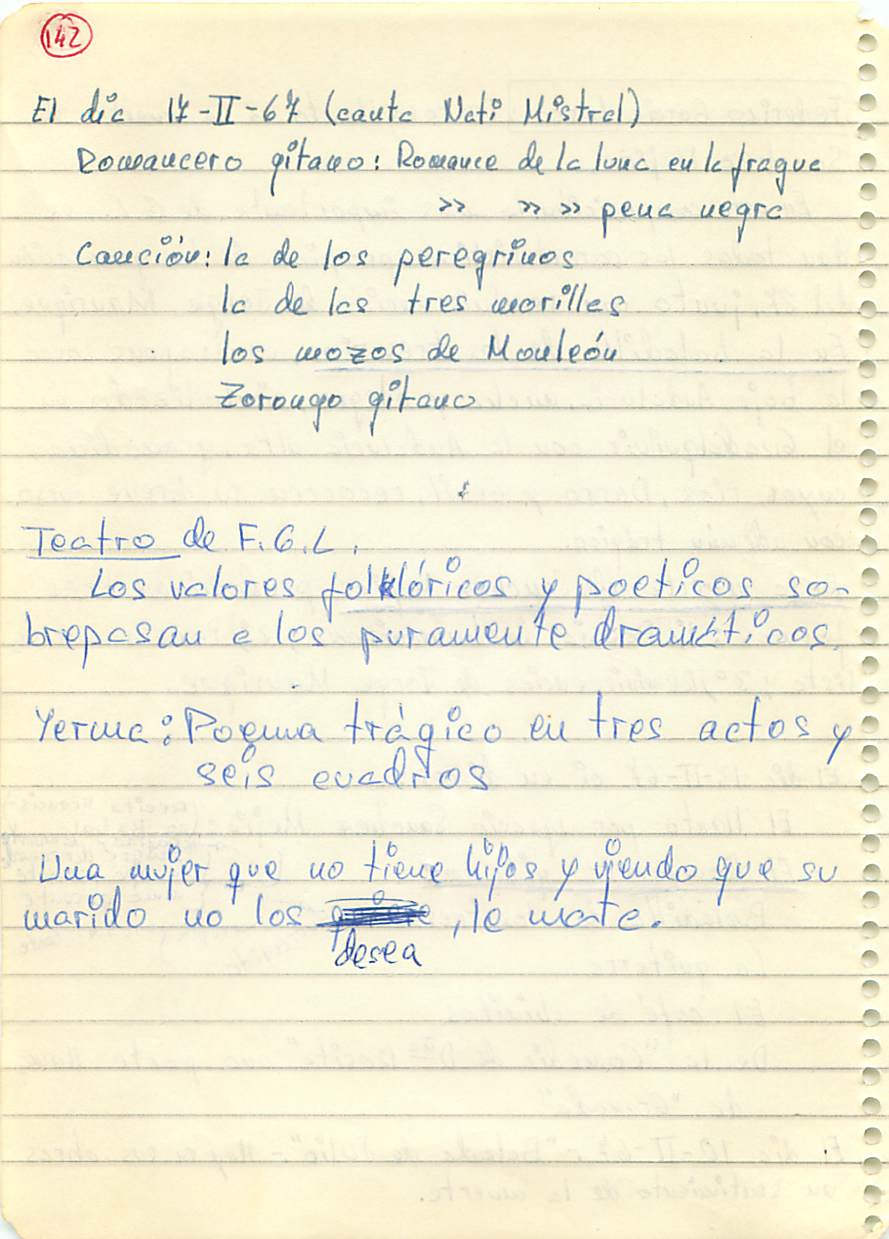 142
El día 17-II-67 (canta Nati Mistral)
Romancero gitano: Romance de la luna en la fragua
" " " pena negra
Canción: la de los peregrinos
la de las tres morillas
los mozos de Monleón
Zorongo gitano
Teatro de F.G.L.
Los valores folklóricos y poéticos so-
brepasan a los puramente dramáticos.
Yerma: Poema trágico en tres actos y
seis cuadros
Una mujer que no tiene hijos y viendo que su
marido no los , le mata.
desea